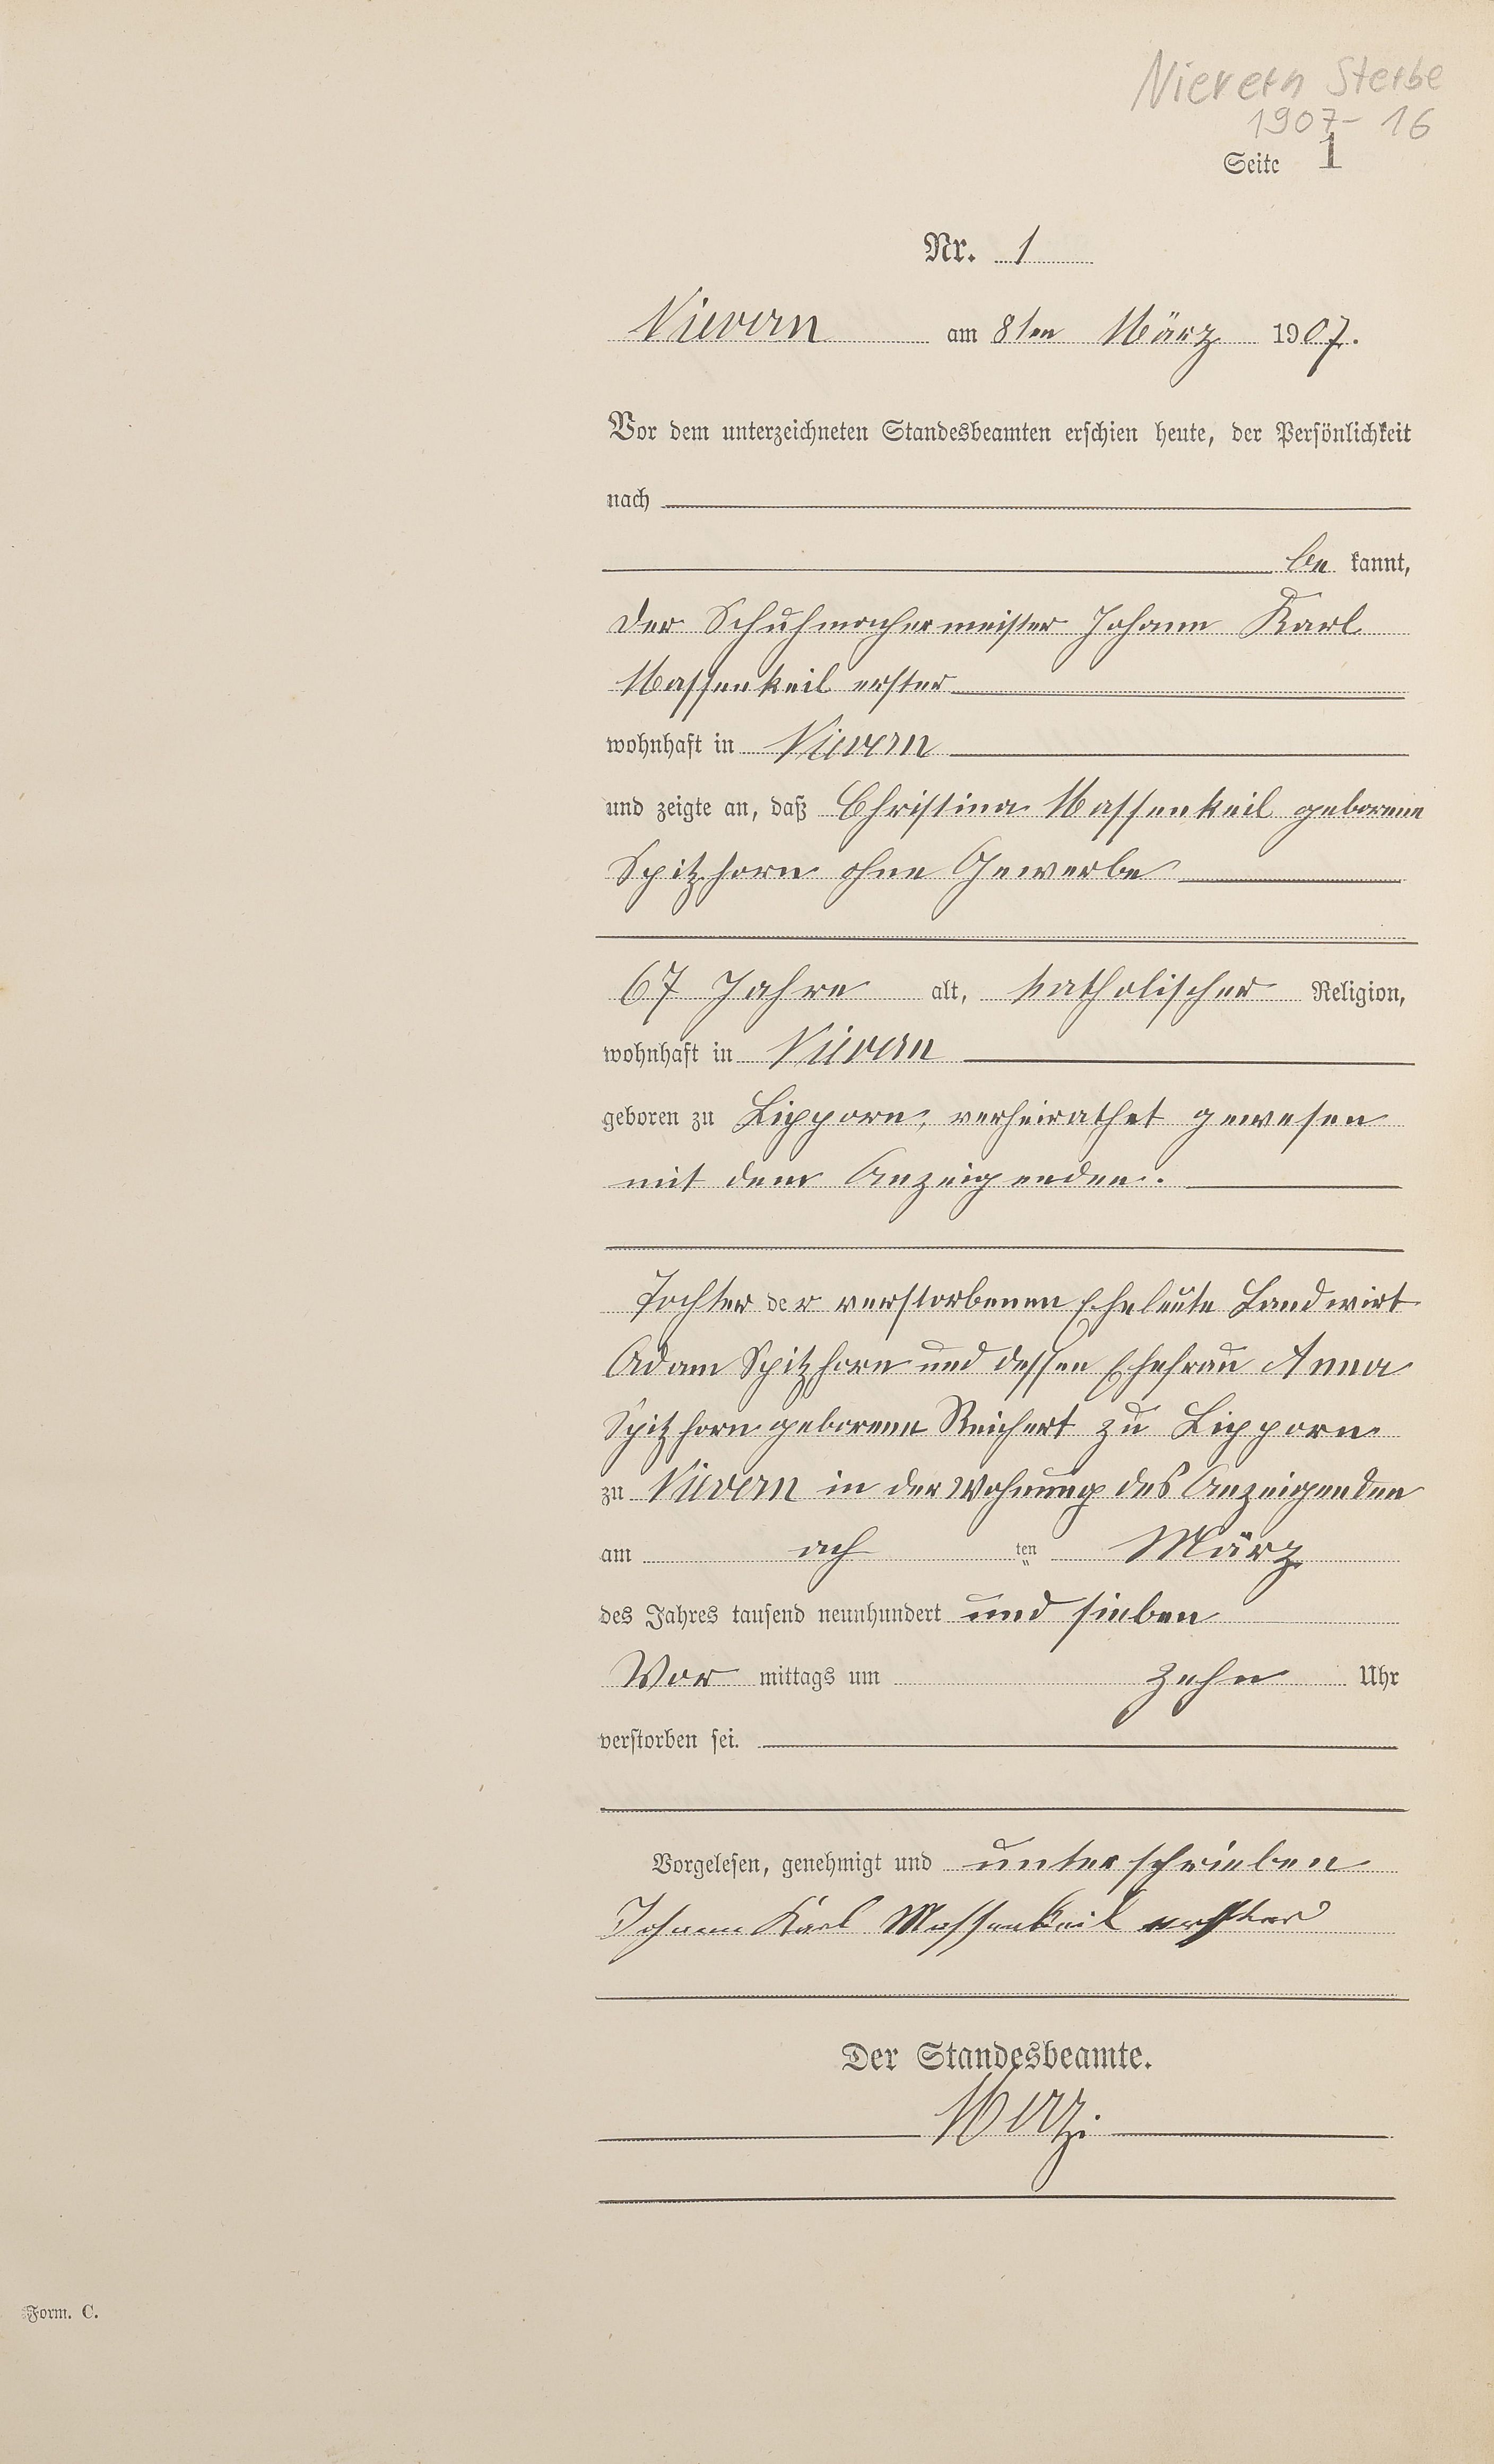 Nievern Sterbe
1907-16
Seite 1
Nr. 1
Nievern am 8ten März 1907.
Vor dem unterzeichneten Standesbeamten erschien heute, der Persönlichkeit
nach
be kannt,
der Schuhmachermeister Johann Karl
Massenkeil erster
wohnhaft in Nievern
und zeigte an, daß Christina Massenkeil geborene
Spitzhorn ohne Gewerbe
67 Jahre alt, katholischer Religion,
wohnhaft in Nievern
geboren zu Lipporn, verheirathet gewesen
mit dem Anzeigenden.
Tochter der verstorbenen Eheleute Landwirt
Adam Spitzhorn und dessen Ehefrau Anna
Spitzhorn geborene Reichert zu Lipporn
zu Nievern in der Wohnung des Anzeigenden
am ach ten März
des Jahres tausend neunhundert und sieben
Vor mittags um zehn Uhr
verstorben sei.
Vorgelesen, genehmigt und unterschrieben
Johann Karl Massenkeil erster
Der Standesbeamte.
Merz.
Form. C.